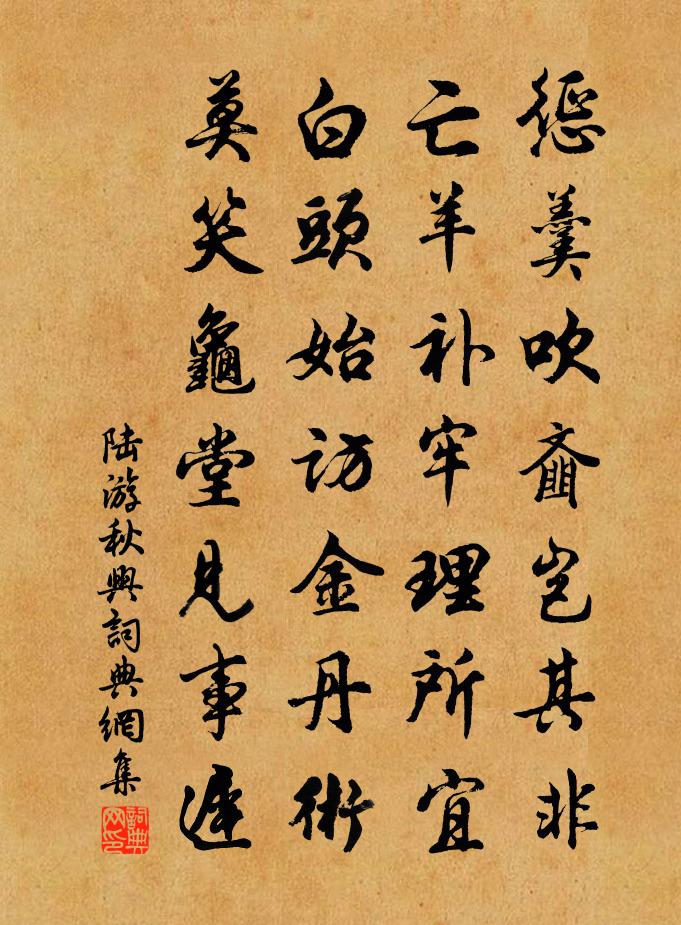 惩羹吹齑岂其非
亡羊补牢理所宜
白頭始訪金丹術
莫笑龜堂見事遲
陆游秋興詞典網集
詞典网印